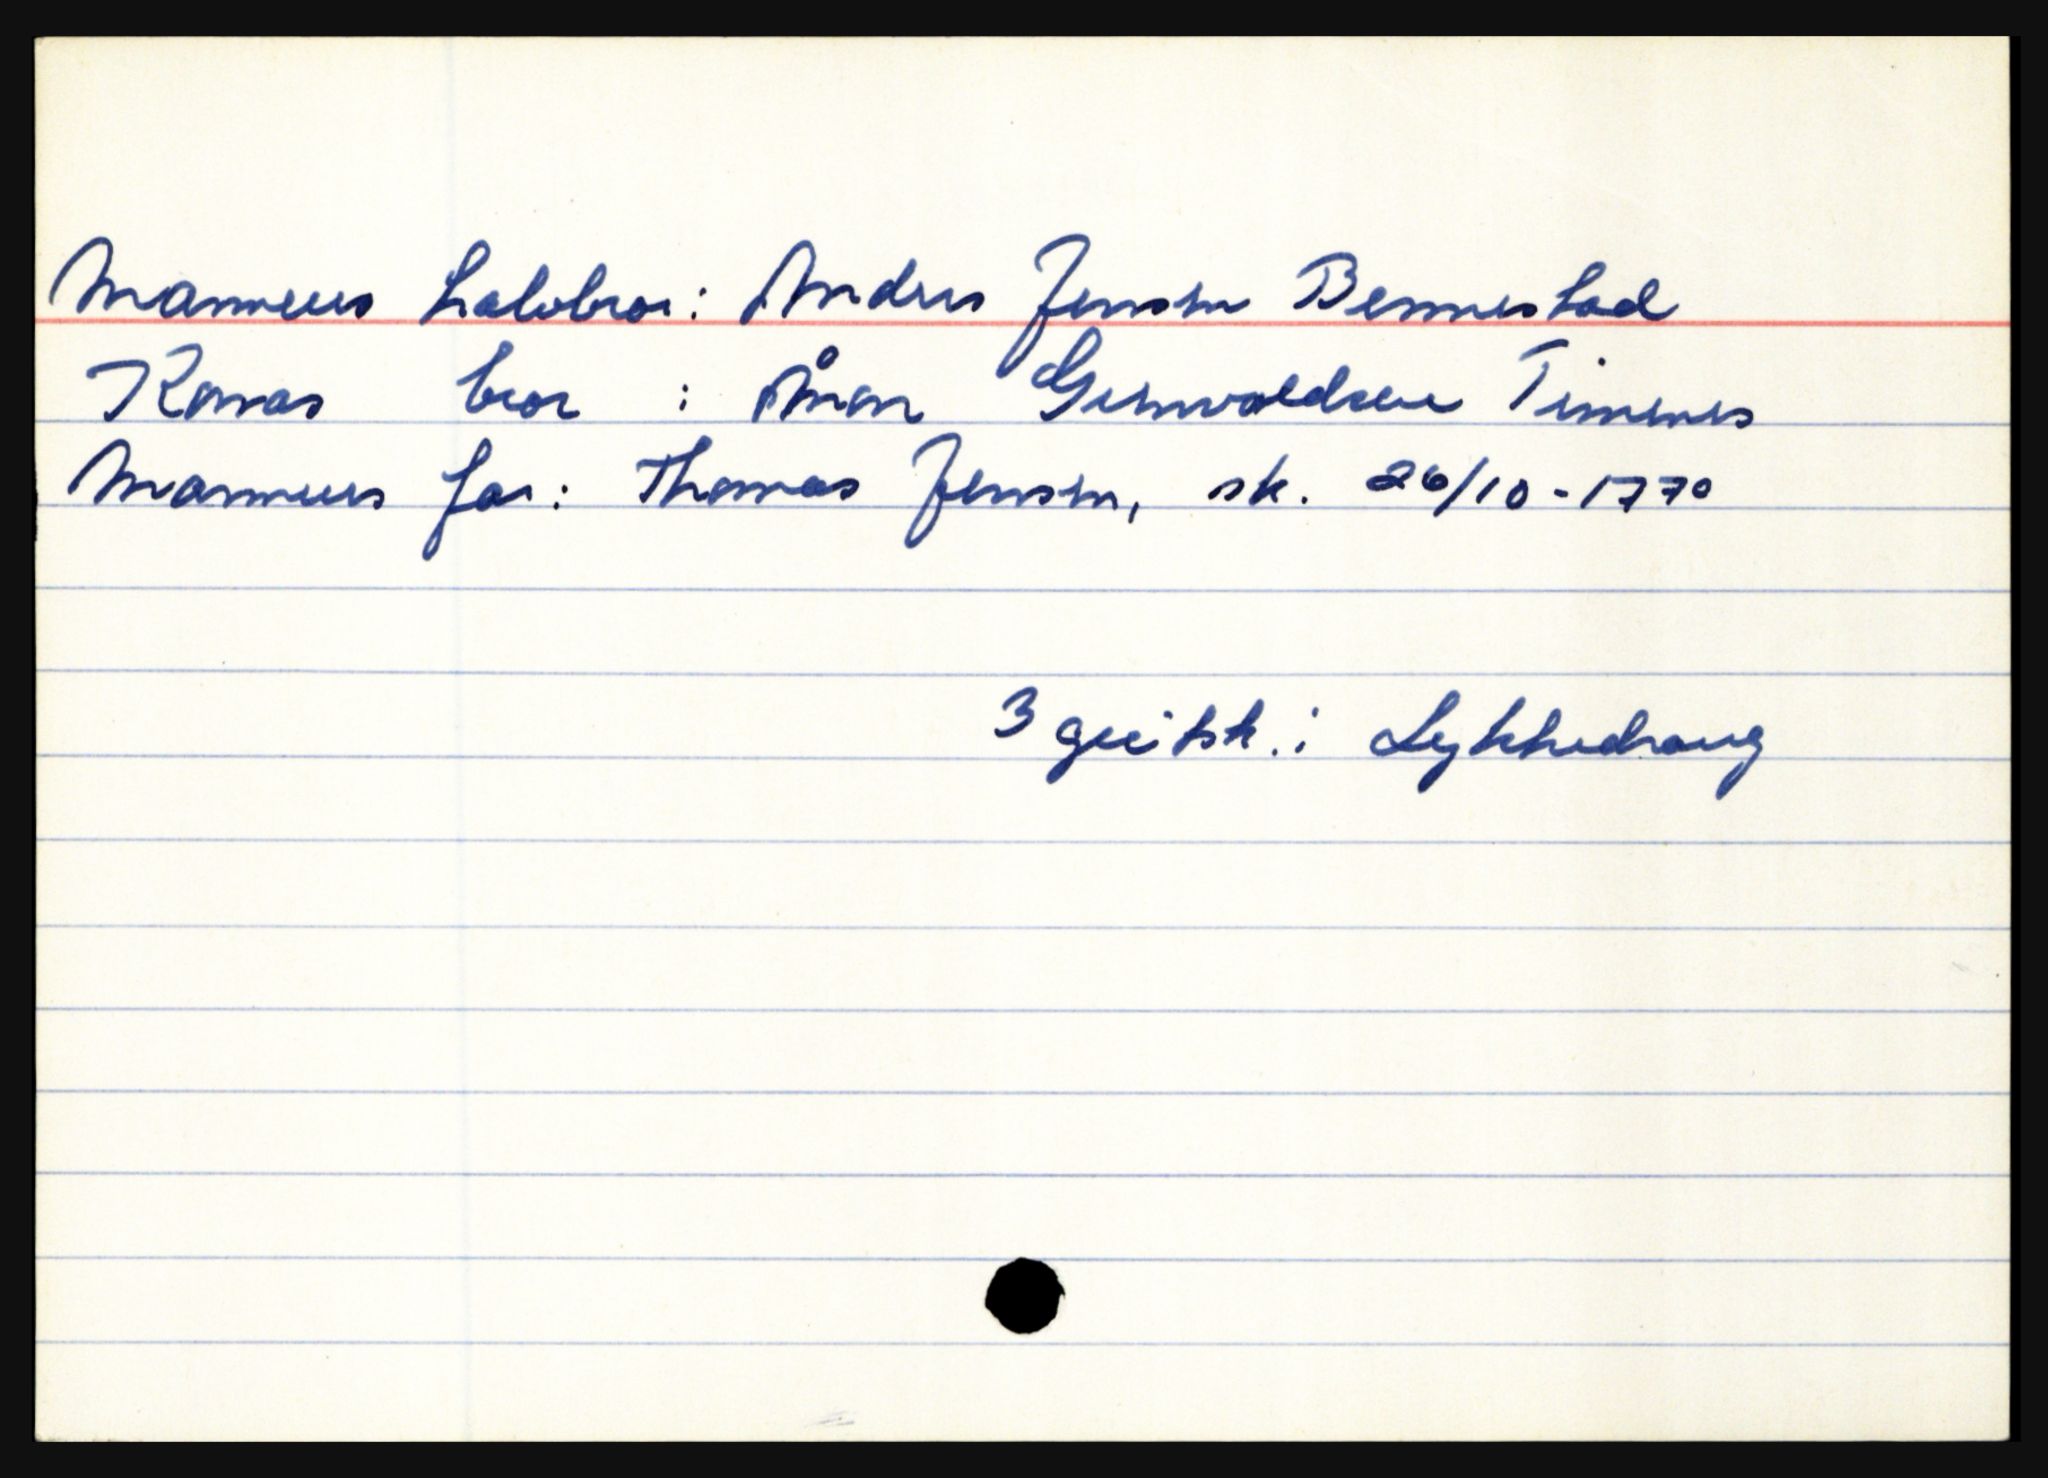 Mannens halvbror: Anders Jensen Bennestad
Konas bror : Ånon Gunvaldsen Timenes
Mannens far: Thomas Jensen, sk. 26/10-1770
3 gitsk. i Lykkedraug